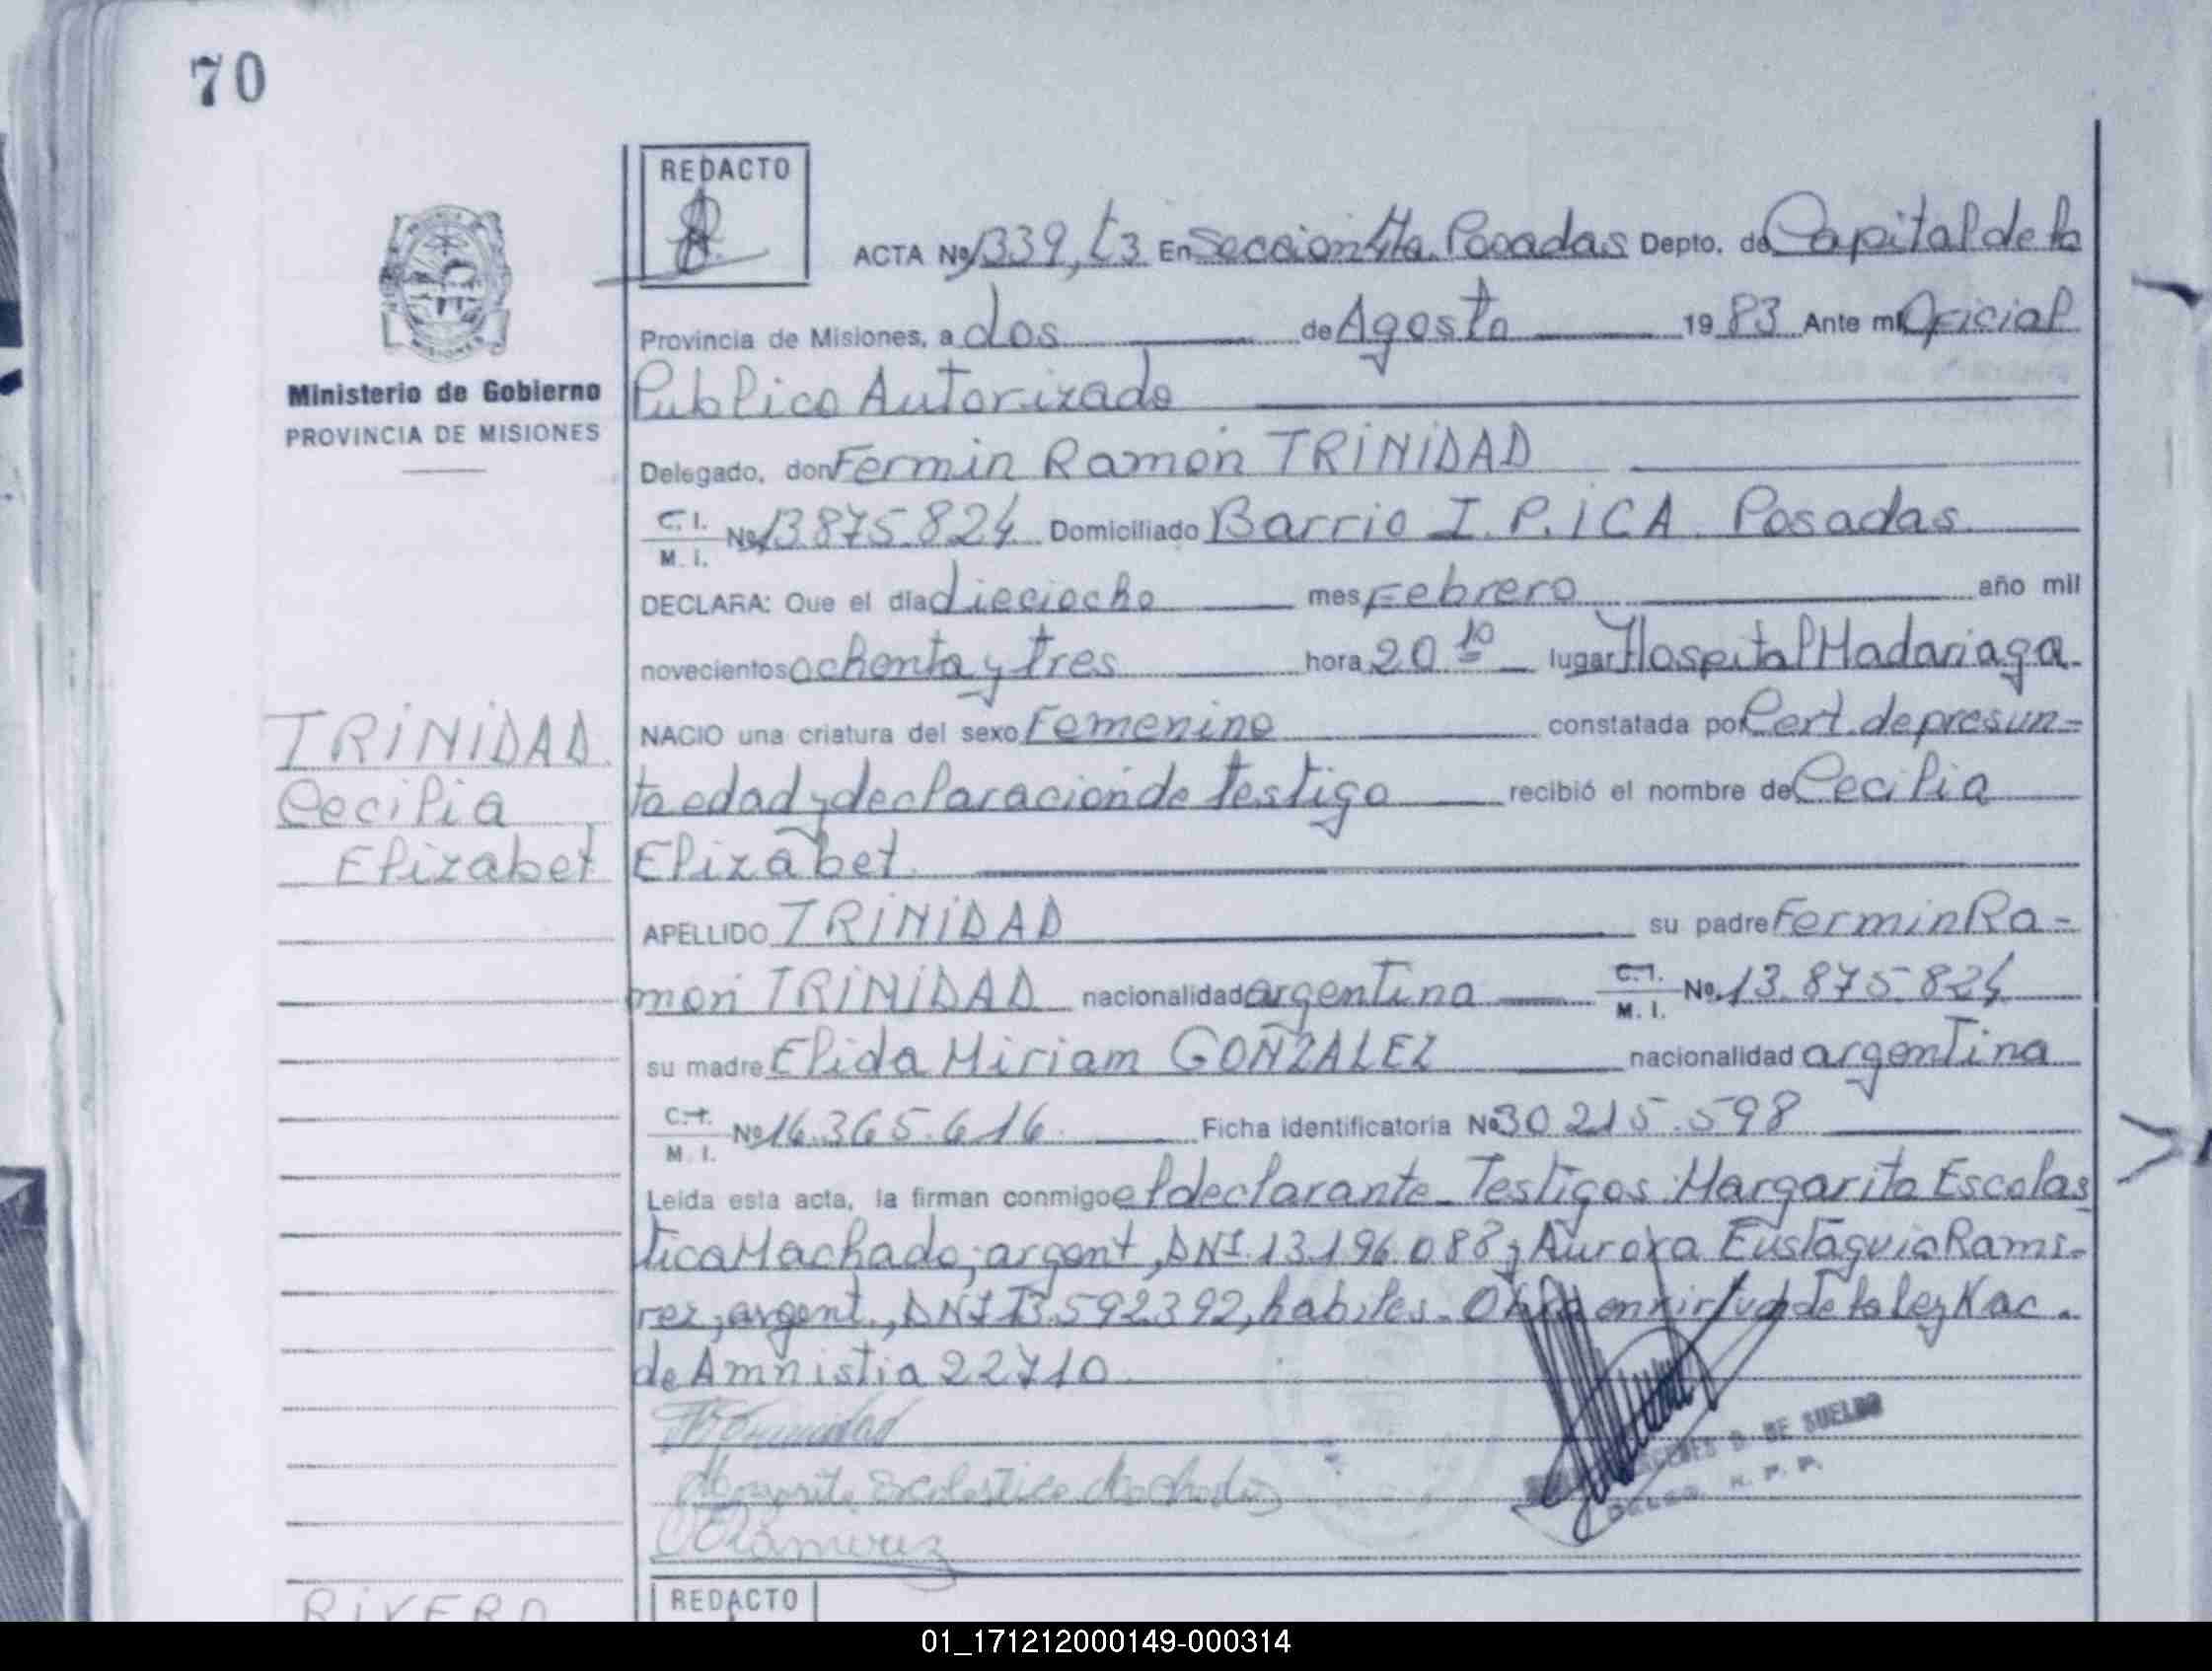 70
REDACTO
ACTA Nº 1339, t3 En Sección 4ta. Posadas Depto. de Capital de la
Provincia de Misiones, a dos de Agosto 1983 Ante mi Oficial
Ministerio de Gobierno
PROVINCIA DE MISIONES
Publico Autorizado
Delegado, don Fermin Ramón TRINIDAD
C. I. M. I. Nº 13.875.824 Domiciliado Barrio I.P.ICA. Posadas
DECLARA: Que el día dieciocho mes Febrero año mil
novecientos ochenta y tres hora 20 10 lugar Hospital Madariaga
NACIO una criatura del sexo Femenino constatada por Cert. de presun=
ta edad y declaración de testigo recibió el nombre de Cecilia
Elizabet
TRINIDAD
Cecilia
Elizabet
APELLIDO TRINIDAD su padre Fermin Ra-
món TRINIDAD nacionalidad argentina C.I. M. I. Nº 13.875.824
su madre Elida Miriam GONZALEZ nacionalidad argentina
C.I. M. I. Nº 16.365.616 Ficha identificatoria Nº 30 215.598
Leida esta acta, la firman conmigo el declarante - Testigos: Margarita Escolas
tica Machado, argent, DNI. 13.196.088 y Aurora Eustaquia Rami-
rez, argent., DNI 13.592392, habiles - en virtud de la ley Nac.
de Amnistia 22710
Margarita Escolastica Machado
Ramirez
DE SUELDO
REDACTO
RIVERO
01_171212000149-000314